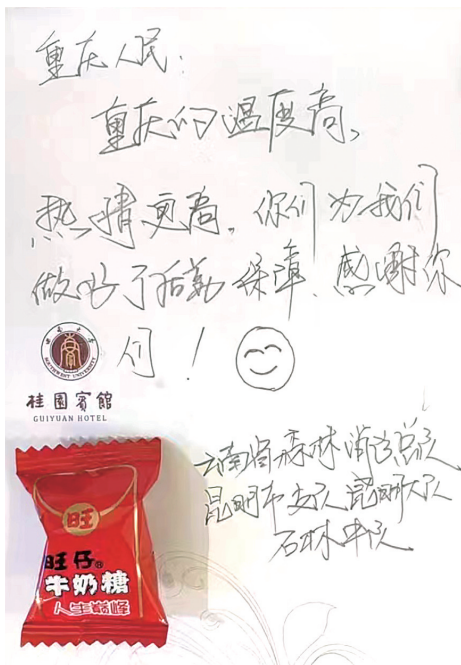 重庆人民：
重庆的温度高，
热情更高，你们为我们
做好了后勤保障，感谢你
们！
西南大学
SOUTHWEST UNIVERSITY
桂園賓館
GUIYUAN HOTEL
云南省森林消防总队
昆明市支队昆明大队
石林中队
旺
旺仔®
牛奶糖
人生巅峰